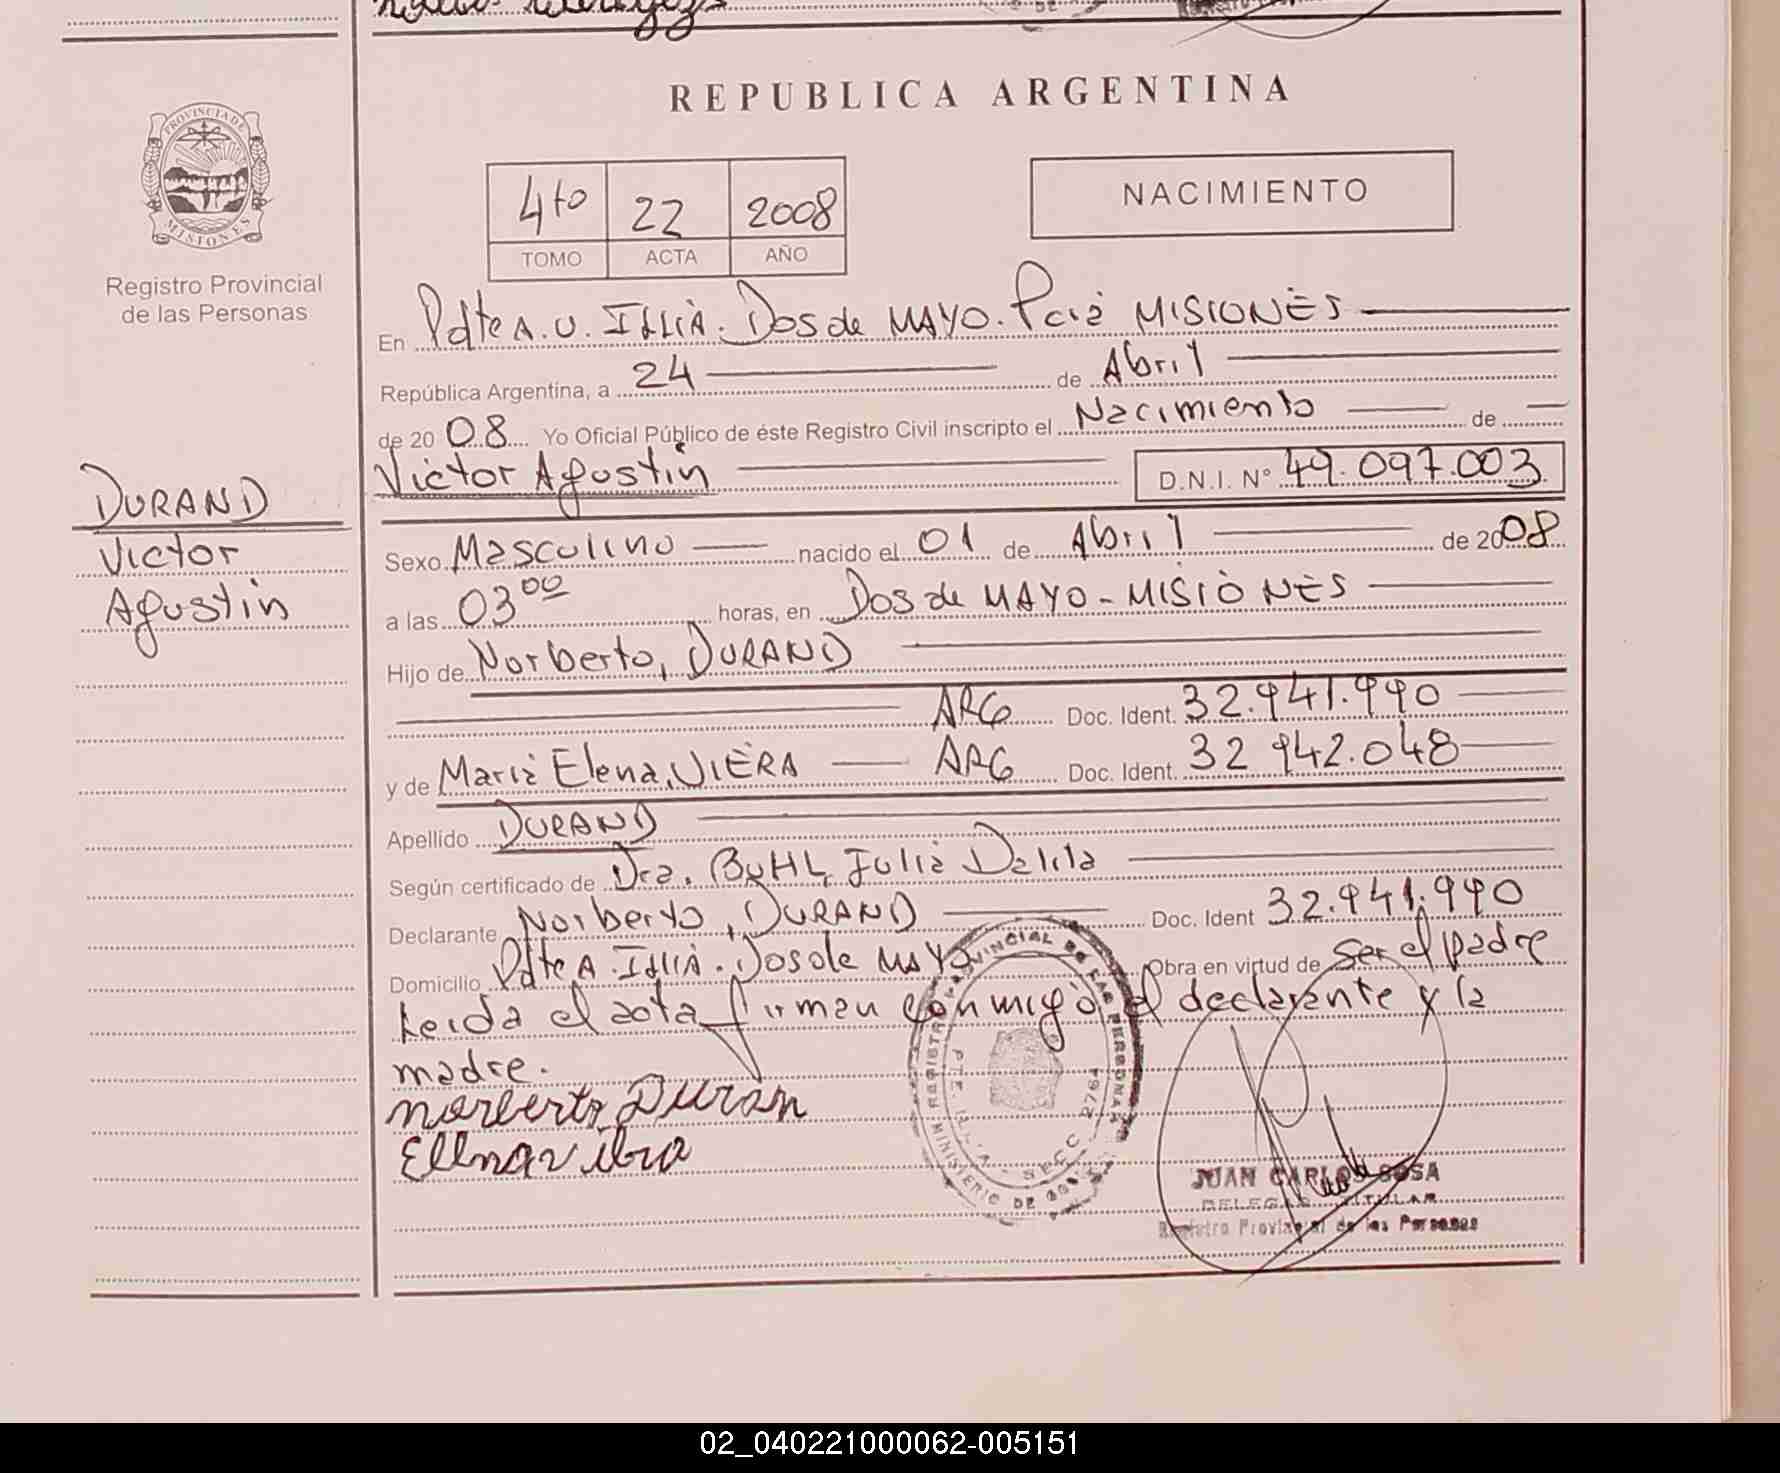 REPUBLICA ARGENTINA
PROVINCIA DE
MISIONES
Registro Provincial
de las Personas
4to 22 2008
TOMO ACTA AÑO
NACIMIENTO
En Pdte A. U. ILLIA. Dos de MAYO. Pcia MISIONES
República Argentina, a 24 de Abril
de 2008 Yo Oficial Público de éste Registro Civil inscripto el Nacimiento de
Victor Agustin D.N.I. Nº 49.097.003
DURAND
Victor
Agustin
Sexo Masculino nacido el 01 de Abril de 2008
a las 03 00 horas, en Dos de MAYO - MISIONES
Hijo de Norberto, DURAND
ARG Doc. Ident. 32.941.990
y de Maria Elena, VIERA ARG Doc. Ident. 32 942.048
Apellido DURAND
Según certificado de Dra. BUHL, Julia Dalila
Declarante Norberto, DURAND Doc. Ident 32.941.990
Domicilio Pdte A. ILLIA. Dos de MAYO Obra en virtud de ser el padre
Leida el acta firman conmigo el declarante y la
madre.
norberto Duran
JUAN CARLOS SOSA
DELEGADO TITULAR
Registro Provincial de las Personas
REGISTRO PROVINCIAL DE LAS PERSONAS
MINISTERIO DE
SECC 2764
02_040221000062-005151